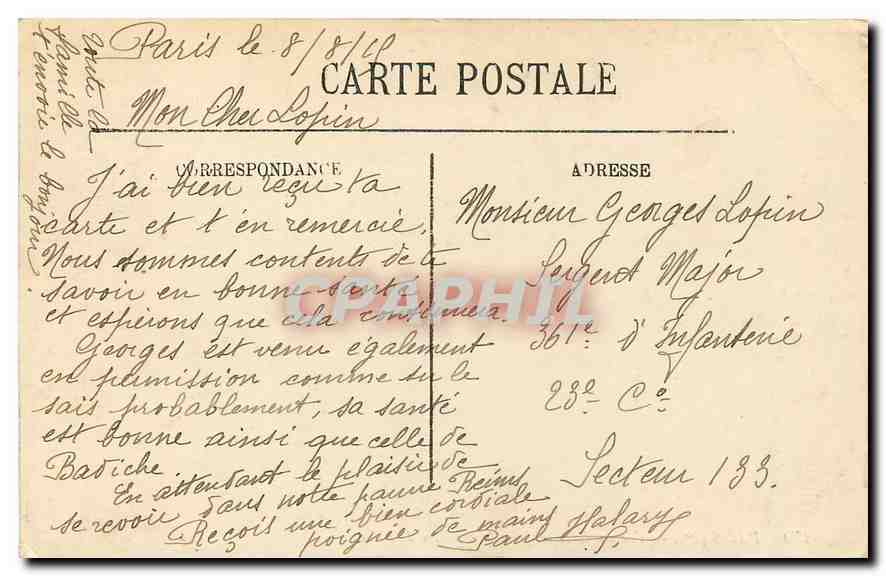 Paris le 8/8/15
CARTE POSTALE
Mon Cher Lopin
CORRESPONDANCE
J'ai bien reçu ta
carte et t'en remercie,
Nous sommes contents de te
savoir en bonne santé
et espérons que cela continuera.
Georges est venu également
en permission comme tu le
sais probablement, sa santé
est bonne ainsi que celle de
Badiche.
En attendant le plaisir de
se revoir dans notre pauvre Reims
Reçois une bien cordiale
poignée de mains
Paul Halary
Toute la
famille
t'envoie le bonjour.
ADRESSE
Monsieur Georges Lopin
Sergent Major
361e d'Infanterie
23e Cie
Secteur 133.
CPAPHIL